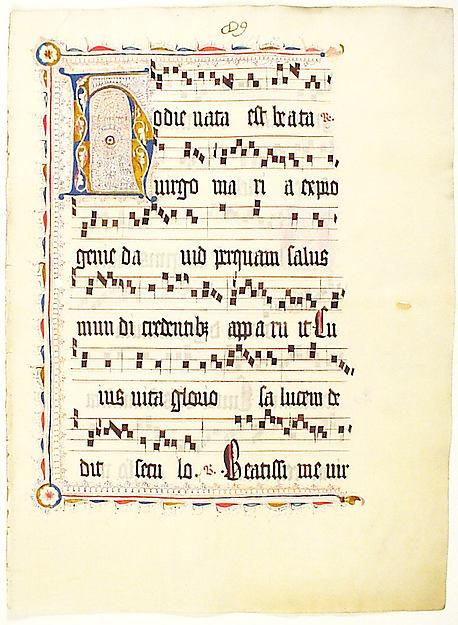 Hodie nata est beata ℟.
uirgo ma ri a ex pro
genie da uid per quam salus
mun di credentibꝫ appa ru it Cu
ius uita glorio sa lucem de
dit secu lo. ℟. Beatissi me vir